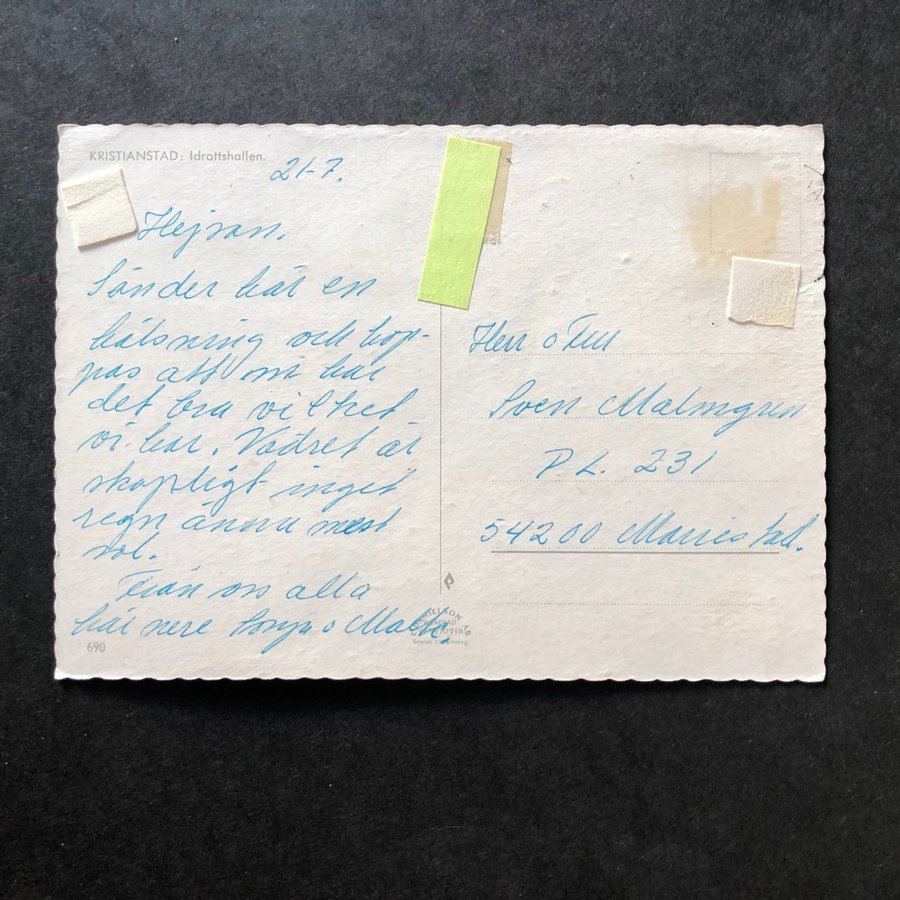 KRISTIANSTAD: Idrottshallen.
21-7.
Hejsan.
Sänder här en
hälsning och hop-
pas att ni har
det bra vilket
vi har. Vädret är
skapligt inget
regn ännu mest
sol.
Från oss alla
här nere Sonja o
690
Herr o Fru
Sven Malmgren
P L. 231
54200 Mariestad.